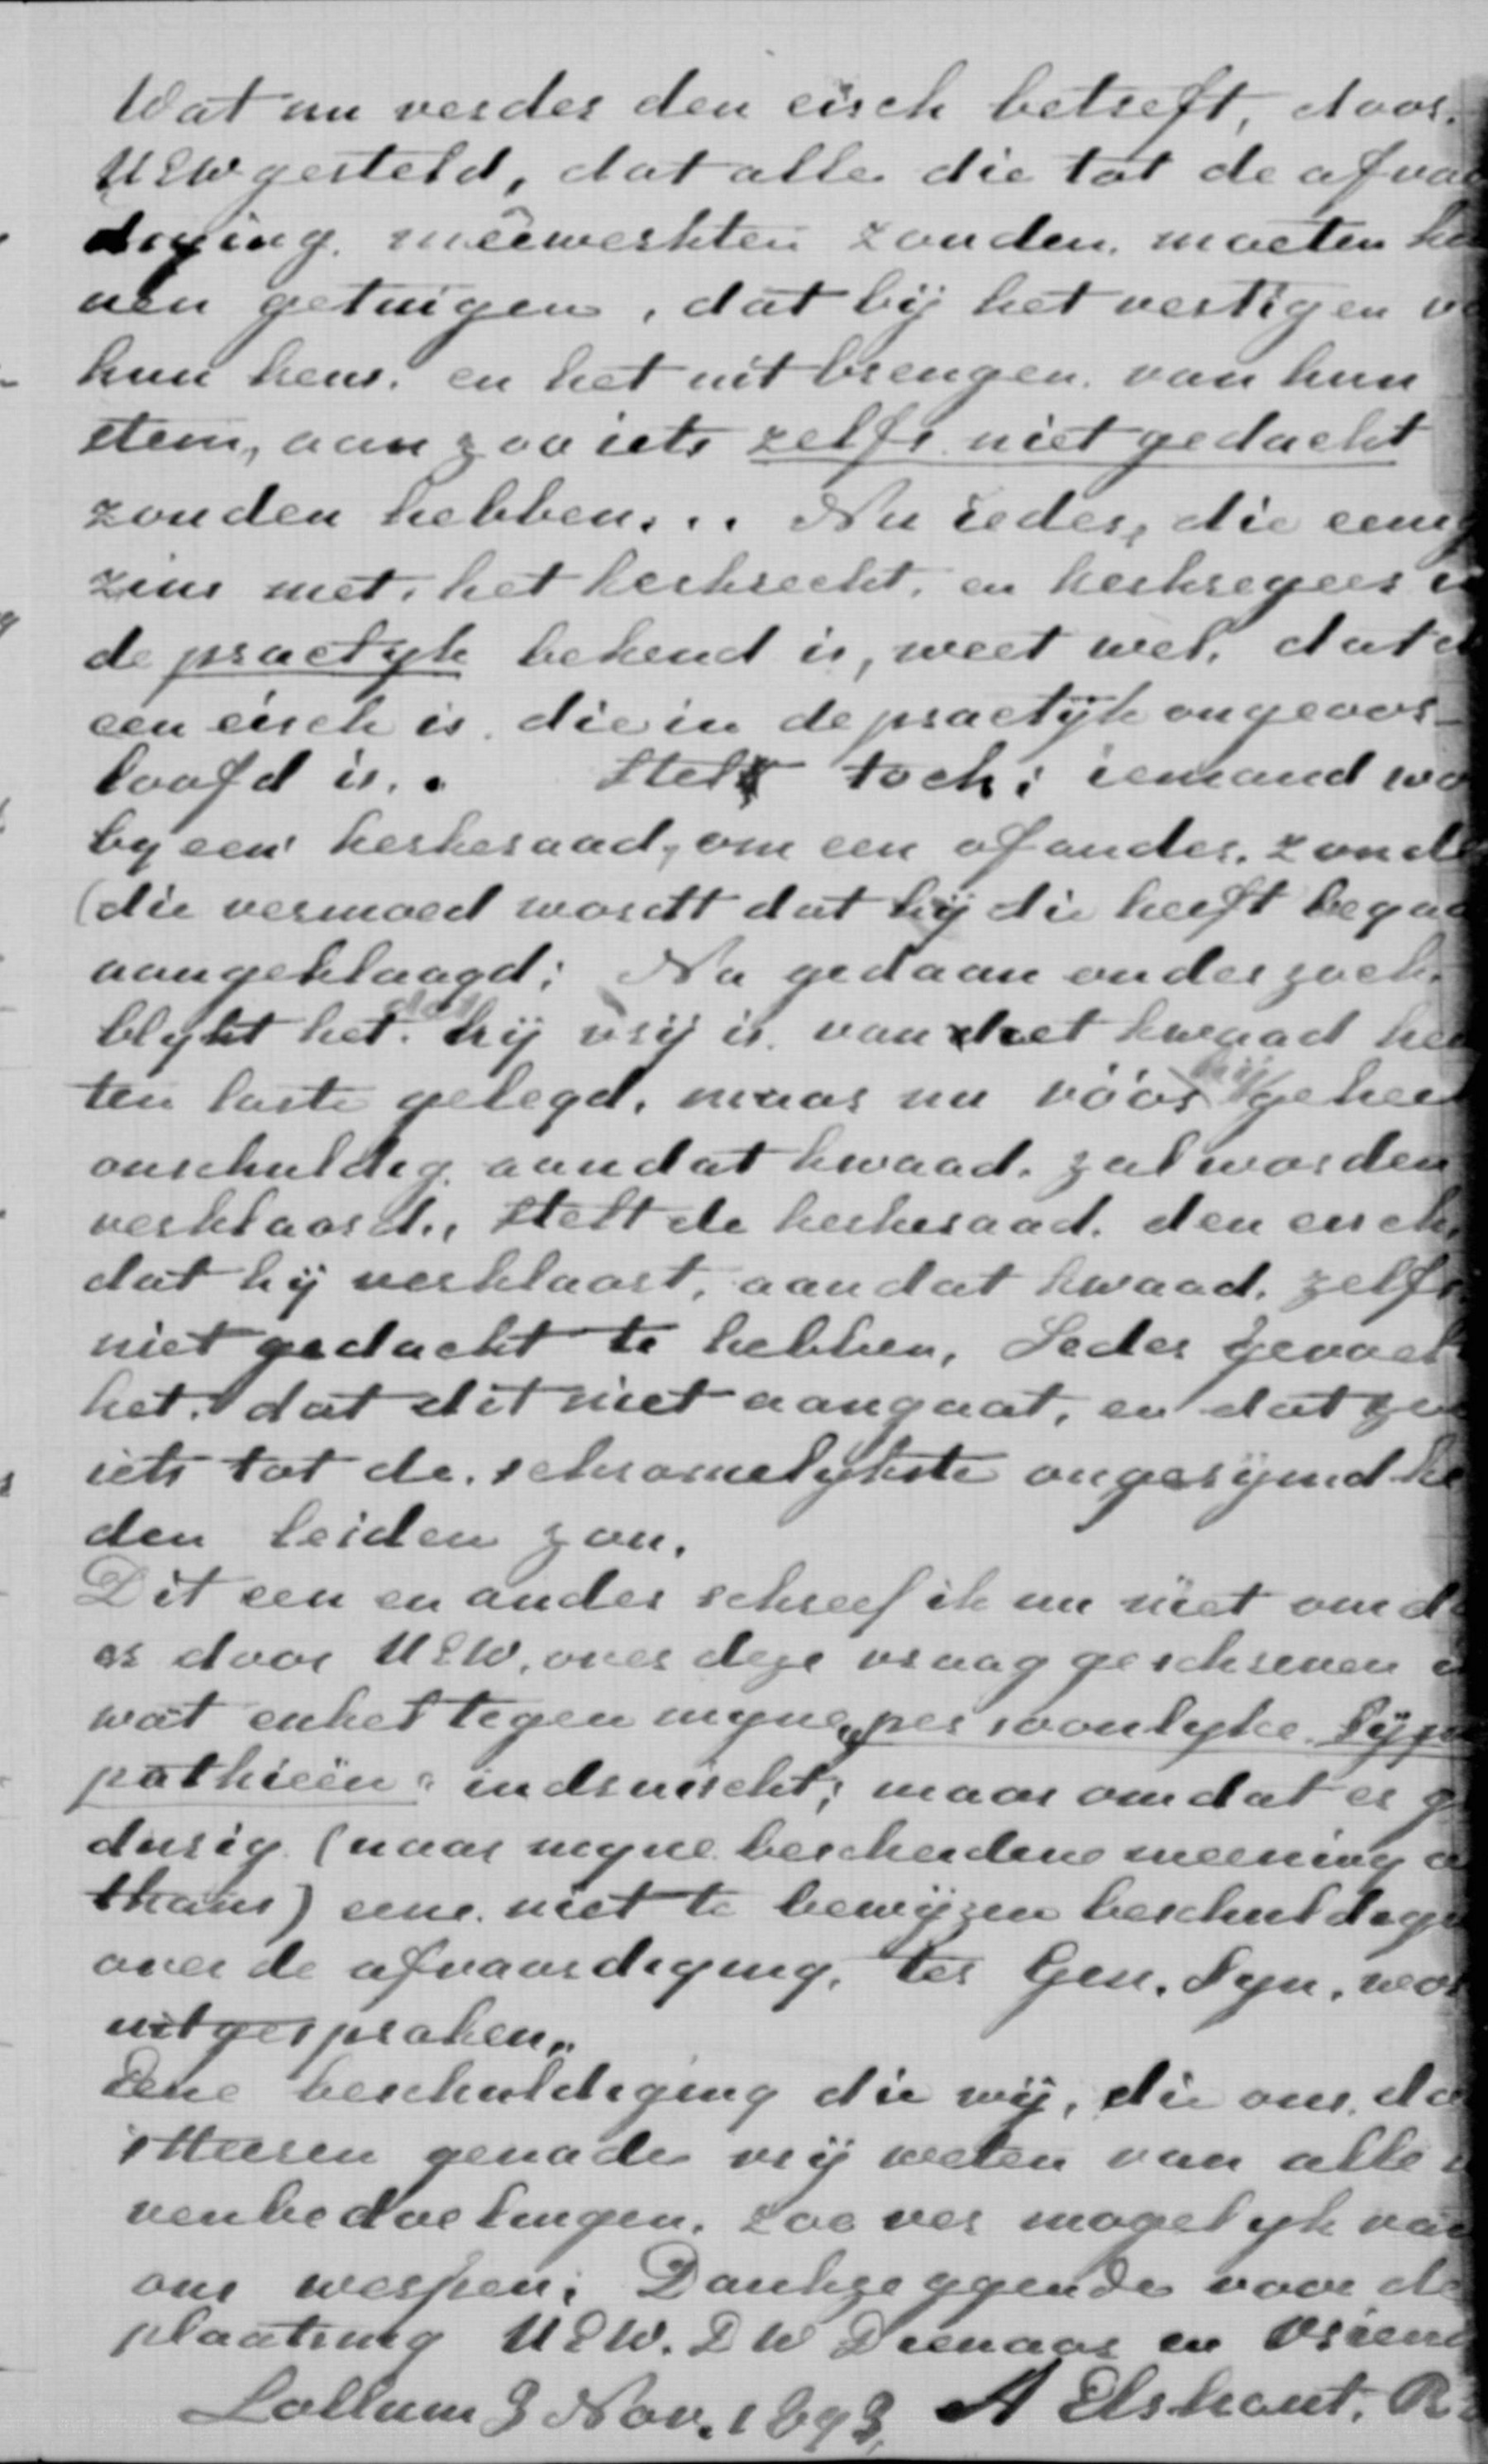 Wat nu verder den eisch betreft, door
UEW gesteld, dat alle die tot de afvaa
diging meêwerkten zouden moeten ku
nen getuigen, dat bij het vestigen v
hun keus en het uitbrengen van hun
stem, aan zoo iets zelfs niet gedacht
zouden hebben... Nu ieder, die eenig
zins met het kerkrecht, en kerkregeer i
de practyk bekend is, weet wel, dat
een eisch is die in de practijk ongeoor-
loofd is.. Stelt toch: iemand wo
by een kerkeraad, om een of ander zonde
(die vermoed wordt dat hij die heeft begaa
aangeklaagd; Na gedaan onderzoek
blykt het dat hij vrij is van het kwaad hem
ten laste gelegd, maar nu vóór hij geheel
onschuldig aan dat kwaad zal worden
verklaard, stelt de kerkeraad den eisch,
dat hij verklaart, aan dat kwaad zelfs
niet gedacht te hebben, Ieder gevoelt
het dat dit niet aangaat, en dat zoo
iets tot de schromelykste ongerijmdhe
den leiden zou.
Dit een en ander schreef ik nu niet omda
er door UEW, over deze vraag geschreven i
wat enkel tegen myne „persoonlyke Sijm
pathieën" indruischt; maar omdat er ge
durig (naar myne bescheidene meening a
thans) eene niet te bewijzen beschuldigin
over de afvaardiging ter Gen. Syn. wor
uitgesproken„
Eene beschuldiging die wij, die ons do
s Heeren genade vrij weten van alle
venbedoelingen, zoo ver mogelyk van
ons werpen; Dankzeggende voor de
plaatsing UEW. DW Dienaar en Vriend
Lollum 3 Nov. 1893, A Elshout, R